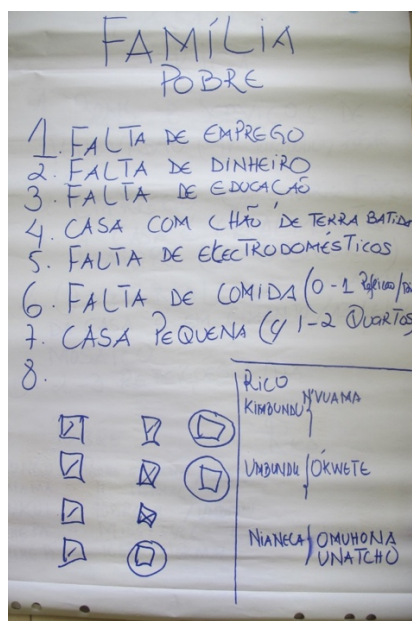 FAMÍLIA
POBRE
1. FALTA DE EMPREGO
2. FALTA DE DINHEIRO
3. FALTA DE EDUCAÇÃO
4. CASA COM CHÃO DE TERRA BATIDA
5. FALTA DE ELECTRODOMÉSTICOS
6. FALTA DE COMIDA (0-1
7. CASA PEQUENA (c/ 1-2 QUARTOS
8.
RICO
KIMBUNDU} N'VUAMA
UMBUNDU {ÓKWETE
NIANECA} OMUHONA
UNATCHO